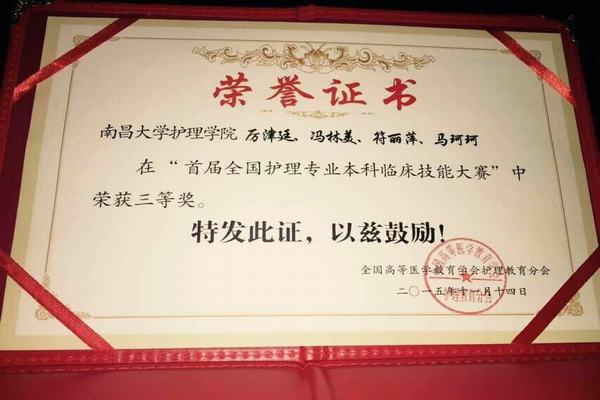 荣誉证书
南昌大学护理学院 厉津廷、冯林美、符丽萍、马珂珂
在“首届全国护理专业本科临床技能大赛”中
荣获三等奖。
特发此证，以兹鼓励！
全国高等医学教育学会护理教育分会
二〇一五年十一月十四日